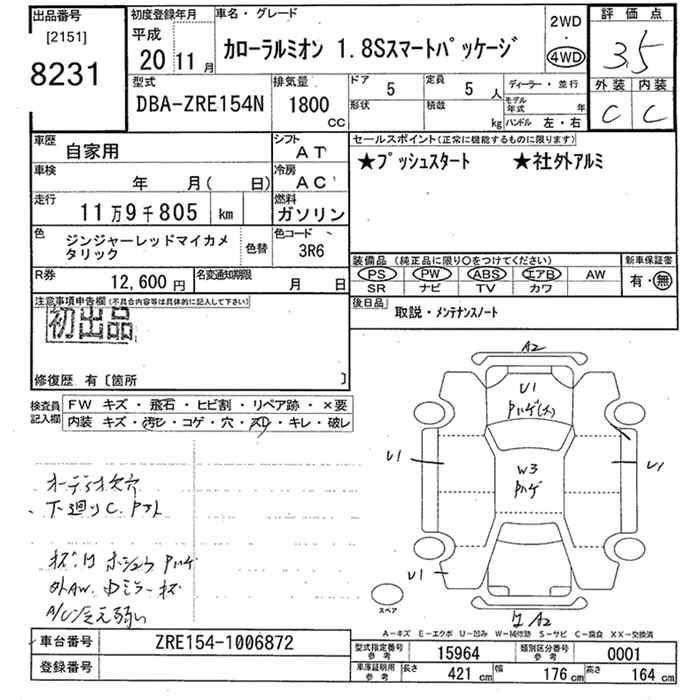 出品番号
[2151]
8231
初度登録年月
平成
20 11月
車名・グレード
カローラルミオン 1.8Sスマートパッケージ
2WD
・
4WD
評価点
3.5
外装 内装
C C
型式
DBA-ZRE154N
排気量
1800
CC
ドア 5
形状
定員 5 人
積載 kg
ディーラー・並行
モデル年式 年
ハンドル 左・右
車歴 自家用
シフト AT
車検 年 月( 日)
冷房 AC
走行 11万9千805 km
燃料 ガソリン
色 ジンジャーレッドマイカメタリック
色替
色コード 3R6
R券 12,600円
名変通知期限 月 日
セールスポイント(正常に機能するものに限ります)
★プッシュスタート ★社外アルミ
装備品 (純正品に限り○をつけてください)
PS PW ABS エアB AW
SR ナビ TV カワ
新車保証書
有・無
後日品 取説・メンテナンスノート
注意事項申告欄(不具合内容等は具体的に記入して下さい)
初出品
修復歴 有〔箇所 〕
検査員記入欄
FW キズ・飛石・ヒビ割・リペア跡・×要
内装 キズ・汚レ・コゲ・穴・スレ・キレ・破レ
オーディオ欠穴
下廻りC.Pアト
外AW.
A/C冷え弱い
A2
U1
Pハゲ(大)
U1
W3
Pハゲ
U1
U1
スペア
A2
A-キズ E-エクボ U-凹み W-補修跡 S-サビ C-腐食 XX-交換済
車台番号 ZRE154-1006872
登録番号
型式指定番号参考 15964
類別区分番号参考 0001
車庫証明用参考 長さ 421 cm 幅 176 cm 高さ 164 cm